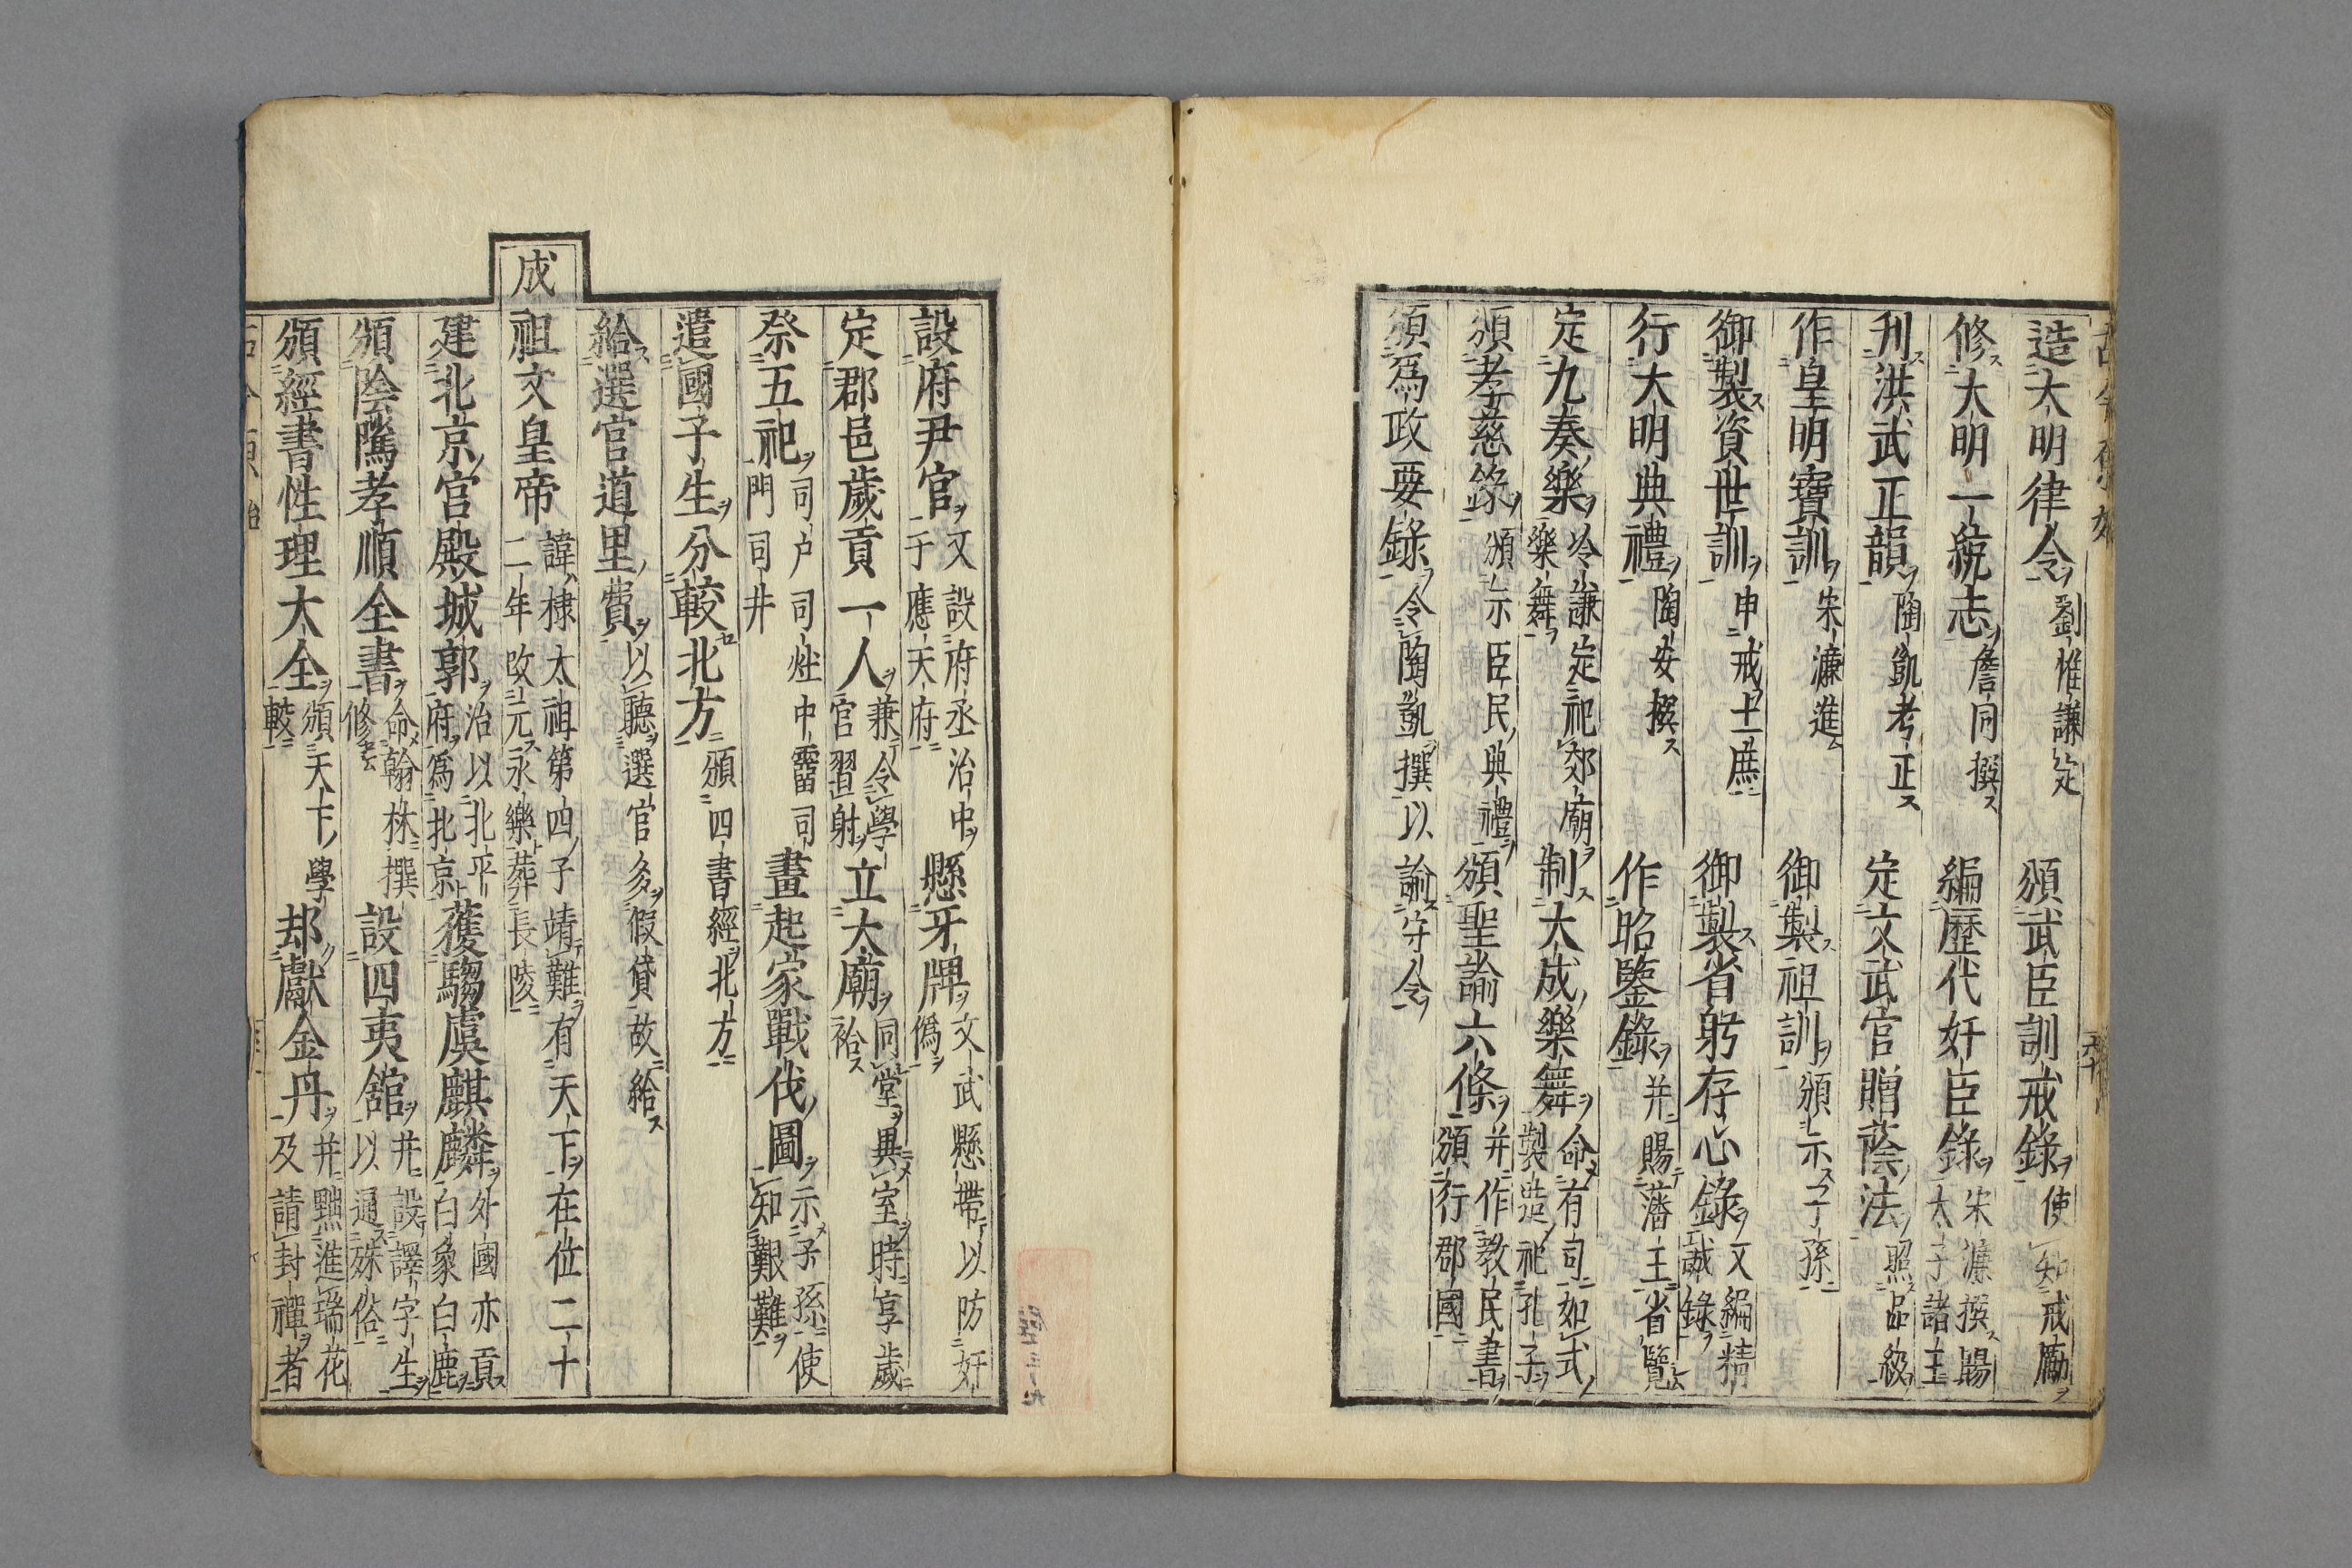 造大明律令劉惟謙定 頒武臣訓戒錄使知戒勵
修大明一統志詹同撰 編歷代奸臣錄宋濂撰賜太子諸王
刋洪武正韻陶凱考正 定文武官贈蔭法照品級
作皇明寶訓宋濂進 御製祖訓頒示子孫
御製資世訓申戒士庶 御製省躬存心錄又編精誠錄
行大明典禮陶安撰 作昭鑒錄并賜藩王省覽
定九奏樂冷謙定祀郊廟樂舞 制大成樂舞命有司如式製造祀孔子
頒孝慈錄頒示臣民典禮 頒聖諭六條并作教民書頒行郡國
頒為政要錄令陶凱撰以諭守令
設府尹官又設府丞治中于應天府 懸牙牌文武懸帶以防奸僞
定郡邑歲貢一人兼令學官習射 立大廟同堂異室時享歲祫
祭五祀司户司灶中霤司門司井 畫起家戰伐圖示子孫使知艱難
遣國子生分較北方頒四書經北方
給選官道里費以聽選官多假貸故給
成祖文皇帝諱棣太祖第四子靖難有天下在位二十二年改元永樂葬長陵
建北京宮殿城郭治以北平府為北京 獲騶虞麒麟外國亦貢白象白鹿
頒陰隲孝順全書命翰林撰修 設四夷舘并設譯字生以通殊俗
頒經書性理大全頒天下學較 却獻金丹并黜進瑞花及請封禪者